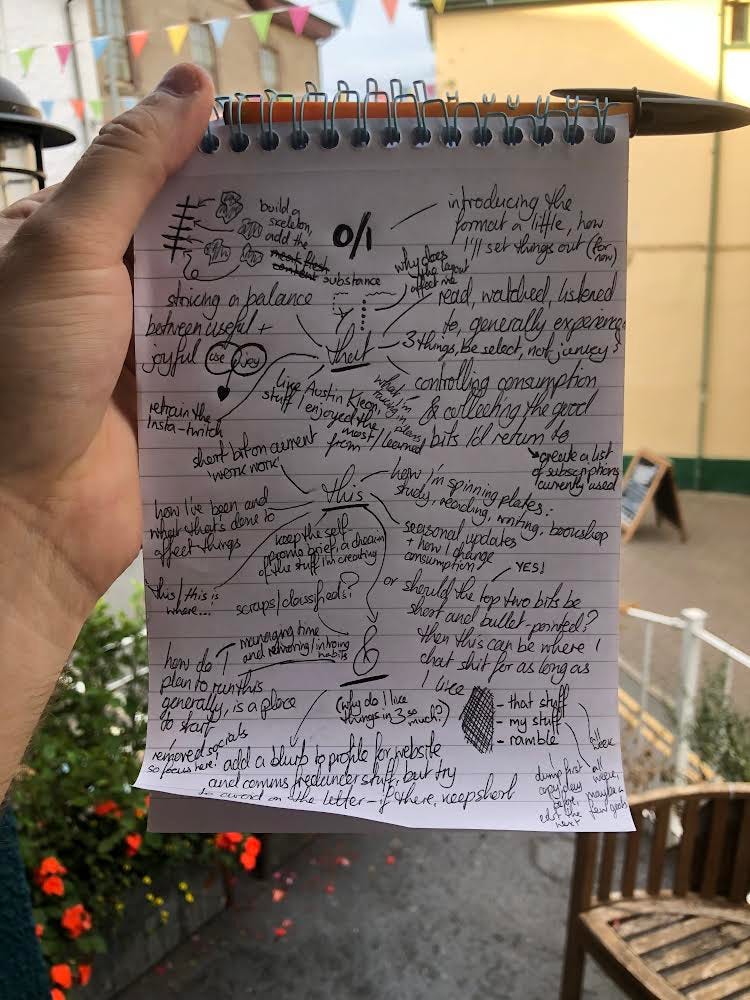 build a
skeleton,
add the
meat flesh
content substance
0/1
introducing the
format a little, how
I'll set things out (for
now)
why does
the layout
affect me
striking a balance
between useful +
joyful use joy
that
read, watched, listened
to, generally experienced
3 things, be select, not
controlling consumption
& collecting the good
bits I'd return to
create a list
of subscriptions
currently used
retrain the
Insta-twitch
like Austin Kleon,
stuff I enjoyed the
most / learned
from
what I'm
short bit on current
'work work'
this
how I'm spinning plates:
study, reading, writing, bookshop
how I've been and
what that's done to
affect things
keep the self-
promo brief, a dream
of the stuff I'm creating
seasonal updates
+ how I change
consumption
YES!
this/this is
where...!
scraps/classifieds?
or should the top two bits be
short and bullet-pointed?
then this can be where I
chat shit for as long as
I like
managing time
and habits
&
how do I
plan to run this
generally, is a place
to start
(why do I like
things in 3 so
much?)
- that stuff
- my stuff
- ramble
removed socials
so focus here!
add a blurb to profile for website
and comms freelancer stuff, but try
to avoid on the letter - if there, keep short
dump first
copy day
before,
edit the
next
all
week,
maybe a
few goals